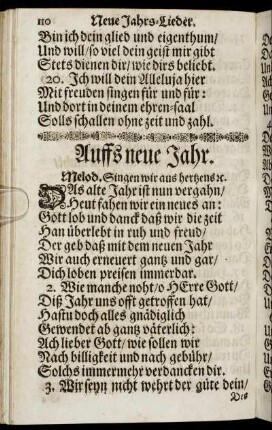 110 Neue Jahrs-Lieder.
Bin ich dein glied und eigenthum/
Und will/ so viel dein geist mir gibt
Stets dienen dir/ wie dirs beliebt.
20. Ich will dein Alleluja hier
Mit freuden singen für und für:
Und dort in deinem ehren-saal
Solls schallen ohne zeit und zahl.
Auffs neue Jahr.
Melod. Singen wir aus hertzens ꝛc.
DAs alte Jahr ist nun vergahn/
Heut fahen wir ein neues an:
Gott lob und danck daß wir die zeit
Han überlebt in ruh und freud/
Der geb daß mit dem neuen Jahr
Wir auch erneuert gantz und gar/
Dich loben preisen immerdar.
2. Wie manche noht/ o HErre Gott/
Diß Jahr uns offt getroffen hat/
Hastu doch alles gnädiglich
Gewendet ab gantz väterlich:
Ach lieber Gott/ wie sollen wir
Nach billigkeit und nach gebühr/
Solchs immermehr verdancken dir.
3. Wir seyn nicht wehrt der güte dein/